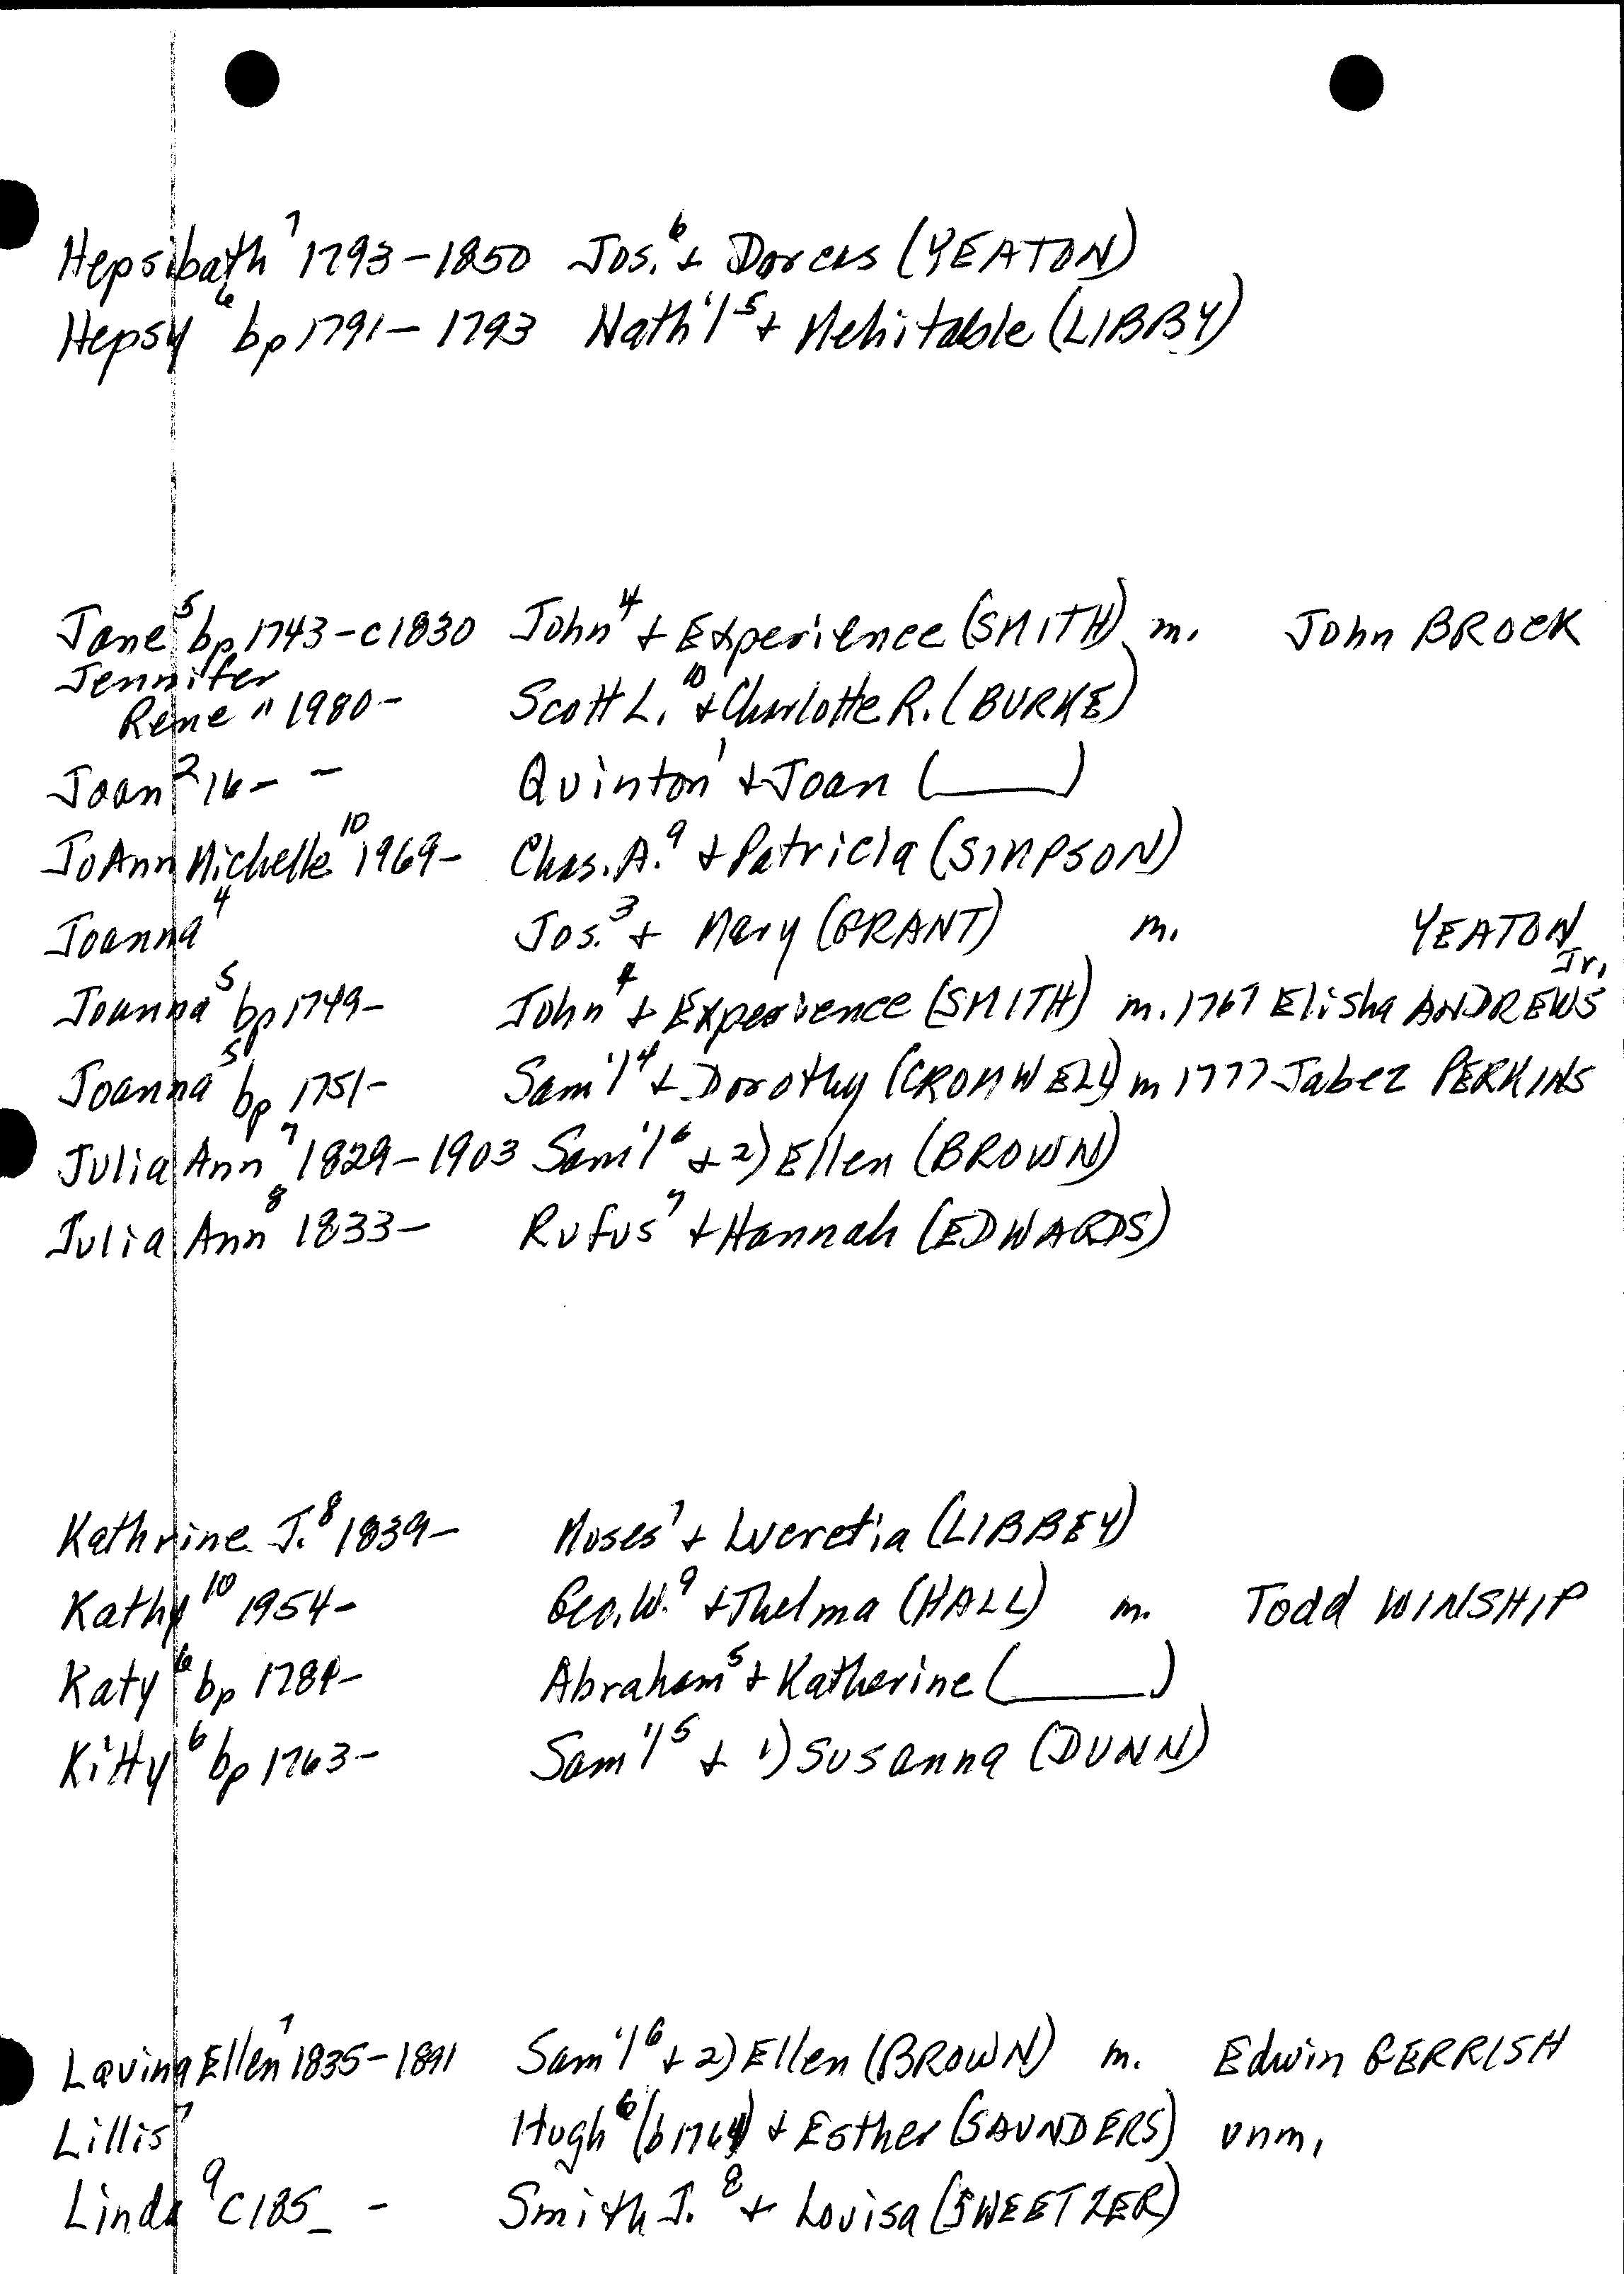 Hepsibath⁷ 1793-1850 Jos.⁶ + Dorcas (YEATON)
Hepsy⁶ bp 1791-1793 Nath'l⁵ + Mehitable (LIBBY)
Jane⁵ bp 1743-c1830 John⁴ + Experience (SMITH) m. John BROCK
Jennifer
Rene¹¹ 1980- Scott L.¹⁰ + Charlotte R. (BURKE)
Joan² 16- - Quinton¹ + Joan (____)
JoAnn Michelle¹⁰ 1969- Chas. A.⁹ + Patricia (SIMPSON)
Joanna⁴ Jos.³ + Mary (GRANT) m. YEATON
Joanna⁵ bp 1749- John⁴ + Experience (SMITH) m. 1767 Elisha ANDREWS Jr.
Joanna⁵ bp 1751- Sam'l⁴ + Dorothy (CROMWELL) m 1777 Jabez PERKINS
Julia Ann⁷ 1829-1903 Sam'l⁶ + 2) Ellen (BROWN)
Julia Ann⁸ 1833- Rufus⁷ + Hannah (EDWARDS)
Kathrine J.⁸ 1839- Moses⁷ + Lucretia (LIBBEY)
Kathy¹⁰ 1954- Geo. W.⁹ + Thelma (HALL) m. Todd WINSHIP
Katy⁶ bp 1784- Abraham⁵ + Katherine (____)
Kitty⁶ bp 1763- Sam'l⁵ + 1) Susanna (DUNN)
Lavina Ellen⁷ 1835-1891 Sam'l⁶ + 2) Ellen (BROWN) m. Edwin GERRISH
Lillis⁷ Hugh⁶ (b 1764) + Esther (SAUNDERS) unm.
Linda⁹ c185_ - Smith J.⁸ + Louisa (SWEETZER)